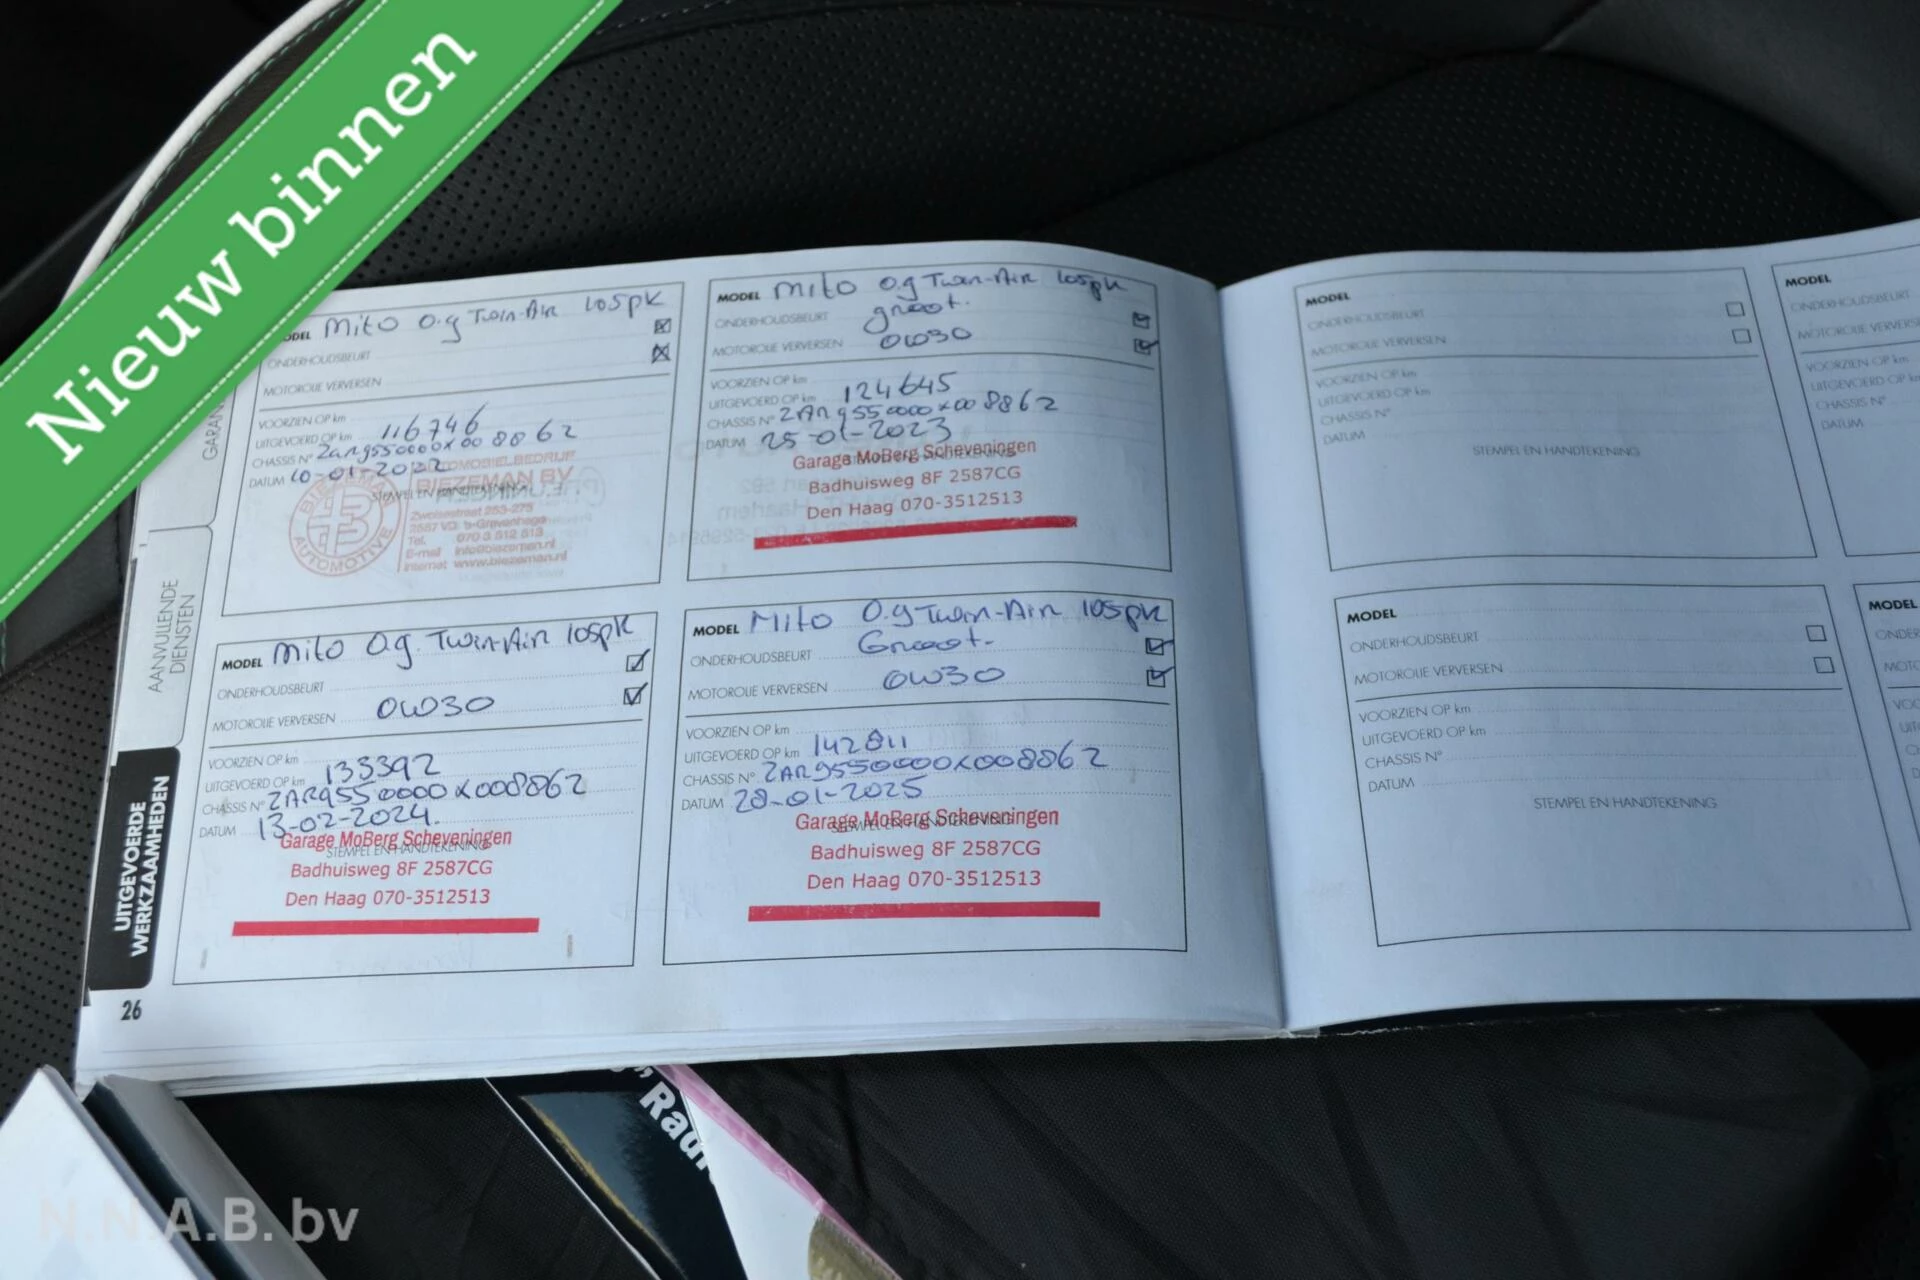 Nieuw binnen
MODEL Mito 0.9 Twin-Air 105pk
ONDERHOUDSBEURT
MOTOROLIE VERVERSEN
VOORZIEN OP km
UITGEVOERD OP km 116746
CHASSIS N° ZAR9550000X008862
DATUM 10-01-2022
STEMPEL EN HANDTEKENING
AUTOMOBIELBEDRIJF
BIEZEMAN BV
Zwolsestraat 253-275
2587 VD 's-Gravenhage
Tel. 070 3 512 513
E-mail info@biezeman.nl
Internet www.biezeman.nl
BIEZEMAN
AUTOMOTIVE
MODEL Mito 0.9 Twin-Air 105pk
ONDERHOUDSBEURT groot.
MOTOROLIE VERVERSEN 0W30
VOORZIEN OP km
UITGEVOERD OP km 124645
CHASSIS N° ZAR9550000X008862
DATUM 25-01-2023
STEMPEL EN HANDTEKENING
Garage MoBerg Scheveningen
Badhuisweg 8F 2587CG
Den Haag 070-3512513
MODEL Mito 0.9. Twin-Air 105pk
ONDERHOUDSBEURT
MOTOROLIE VERVERSEN 0W30
VOORZIEN OP km
UITGEVOERD OP km 133392
CHASSIS N° ZAR9550000X008862
DATUM 13-02-2024.
STEMPEL EN HANDTEKENING
Garage MoBerg Scheveningen
Badhuisweg 8F 2587CG
Den Haag 070-3512513
MODEL Mito 0.9 Twin-Air 105pk
ONDERHOUDSBEURT Groot.
MOTOROLIE VERVERSEN 0W30
VOORZIEN OP km
UITGEVOERD OP km 142811
CHASSIS N° ZAR9550000X008862
DATUM 28-01-2025
STEMPEL EN HANDTEKENING
Garage MoBerg Scheveningen
Badhuisweg 8F 2587CG
Den Haag 070-3512513
AANVULLENDE
DIENSTEN
UITGEVOERDE
WERKZAAMHEDEN
26
MODEL
ONDERHOUDSBEURT
MOTOROLIE VERVERSEN
VOORZIEN OP km
UITGEVOERD OP km
CHASSIS N°
DATUM
STEMPEL EN HANDTEKENING
MODEL
ONDERHOUDSBEURT
MOTOROLIE VERVERSEN
VOORZIEN OP km
UITGEVOERD OP km
CHASSIS N°
DATUM
STEMPEL EN HANDTEKENING
MODEL
ONDERHOUDSBEURT
VOORZIEN OP km
UITGEVOERD OP km
CHASSIS N°
DATUM
MODEL
N.N.A.B. bv